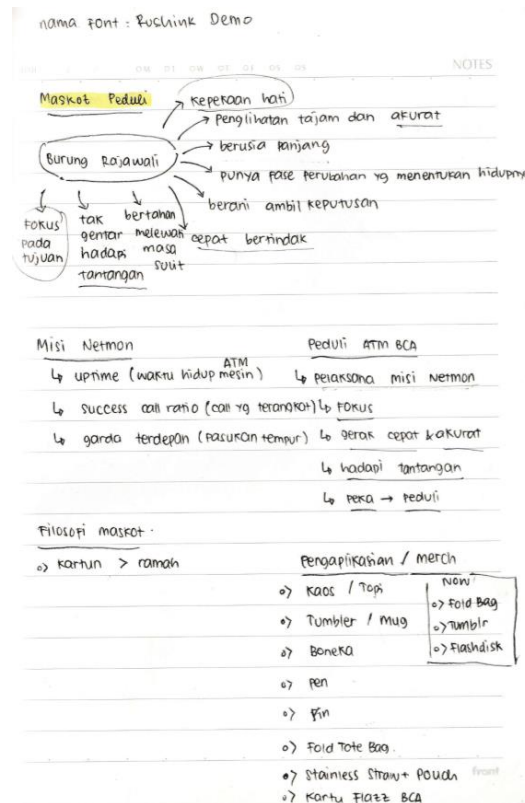 nama font : Rushink Demo
NOTES
Maskot Peduli
Kepekaan hati
Penglihatan tajam dan akurat
berusia panjang
Burung Rajawali
punya fase perubahan yg menentukan hidupny
berani ambil keputusan
cepat bertindak
Fokus pada tujuan
tak gentar hadapi tantangan
bertahan melewati masa sulit
Misi Netmon
↳ uptime (waktu hidup mesin ATM)
↳ success call ratio (call yg terangkat)
↳ garda terdepan (pasukan tempur)
Peduli ATM BCA
↳ pelaksana misi Netmon
↳ Fokus
↳ gerak cepat & akurat
↳ hadapi tantangan
↳ peka → peduli
Filosofi maskot.
o> Kartun > ramah
Pengaplikasian / merch
o> Kaos / Topi
o> Tumbler / Mug
o> Boneka
o> Pen
o> Pin
o> Fold Tote Bag.
o> Stainless Straw + Pouch
o> Kartu Flazz BCA
NOW
o> Fold Bag
o> Tumblr
o> Flashdisk
front